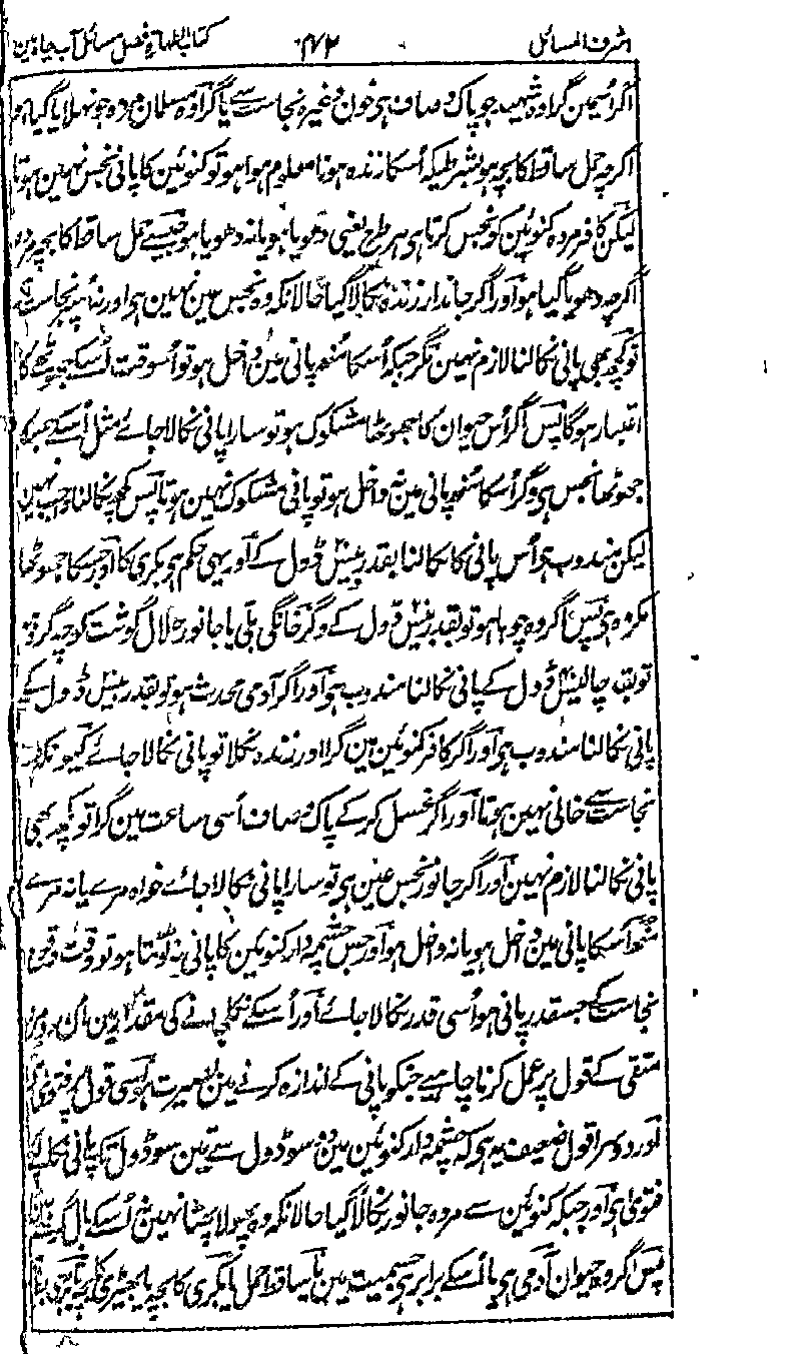 اشرف المسائل ۴۷۲ کتاب الطہارۃ فصل مسائل آب چاہ مین
اگر اسمین گرا وہ شہید جو پاک و صاف ہی خون وغیرہ نجاست سے یا گرا وہ مسلمان مردہ جو نہلایا گیا ہو
اگرچہ حمل ساقط کا بچہ ہو بشرطیکہ اُسکا زندہ ہونا معلوم ہوا ہو تو کنوئین کا پانی نجس نہین ہوتا
لیکن کافر مردہ کنوئین کو نجس کرتا ہی ہر طرح یعنی دھویا ہو یا نہ دھویا ہو جیسے حمل ساقط کا بچہ مردہ
اگرچہ دھویا گیا ہو اور اگر جاندار زندہ نکالا گیا حالانکہ وہ نجس عین نہین ہی اور نہ اُسپر نجاست ہی
تو کچھ بھی پانی نکالنا لازم نہین مگر جبکہ اُسکا مُنھ پانی مین داخل ہو تو اُسوقت اُسکے جوٹھے کا
اعتبار ہوگا پس اگر اُس حیوان کا جھوٹھا مشکوک ہو تو سارا پانی نکالا جائے مثل اُسکے جسکا
جھوٹھا نجس ہی وگر اُسکا مُنھ پانی مین نہ داخل ہو تو پانی مشکوک نہین ہوتا پس کچھ نکالنا واجب نہین
لیکن مندوب ہی اُس پانی کا نکالنا بقدر بیس ڈول کے اور یہی حکم ہی بکری کا اور جسکا جھوٹھا
مکروہ ہی پس اگر وہ چوہا ہو تو بقدر بیس ڈول کے وگر خانگی بلی یا جانور حلال گوشت کوچہ گرد ہو
تو بقدر چالیس ڈول کے پانی نکالنا مندوب ہی اور اگر آدمی محدث ہو تو بقدر بیس ڈول کے
پانی نکالنا مندوب ہی اور اگر کافر کنوئین مین گرا اور زندہ نکلا تو پانی نکالا جائے کیونکہ وہ
نجاست سے خالی نہین ہوتا اور اگر غسل کر کے پاک و صاف اُسی ساعت مین گرا تو کچھ بھی
پانی نکالنا لازم نہین اور اگر جانور نجس عین ہی تو سارا پانی نکالا جائے خواہ مرے یا نہ مرے
مُنھ اُسکا پانی مین داخل ہو یا نہ داخل ہو اور جس چشمہ دار کنوئین کا پانی نہ ٹوٹتا ہو تو وقت وقوع
نجاست کے جسقدر پانی ہو اُسی قدر نکالا جائے اور اُسکے نکلجانے کی مقدار مین اُن دو مرد
متقی کے قول پر عمل کرنا چاہیے جنکو پانی کے اندازہ کرنے مین بصیرت ہو اسی قول پر فتویٰ ہی
اور دوسرا قول ضعیف یہ ہی کہ چشمہ دار کنوئین مین دو سو ڈول سے تین سو ڈول تک پانی نکلے
فتویٰ ہی اور جبکہ کنوئین سے مردہ جانور نکالا گیا حالانکہ وہ پھولا پھٹا نہین نہ اُسکے بال گرے
پس اگر وہ حیوان آدمی ہی یا اُسکے برابر ہی جسمیت مین یا ساقط الحمل یا بکری کا بچہ یا بھیڑی کا